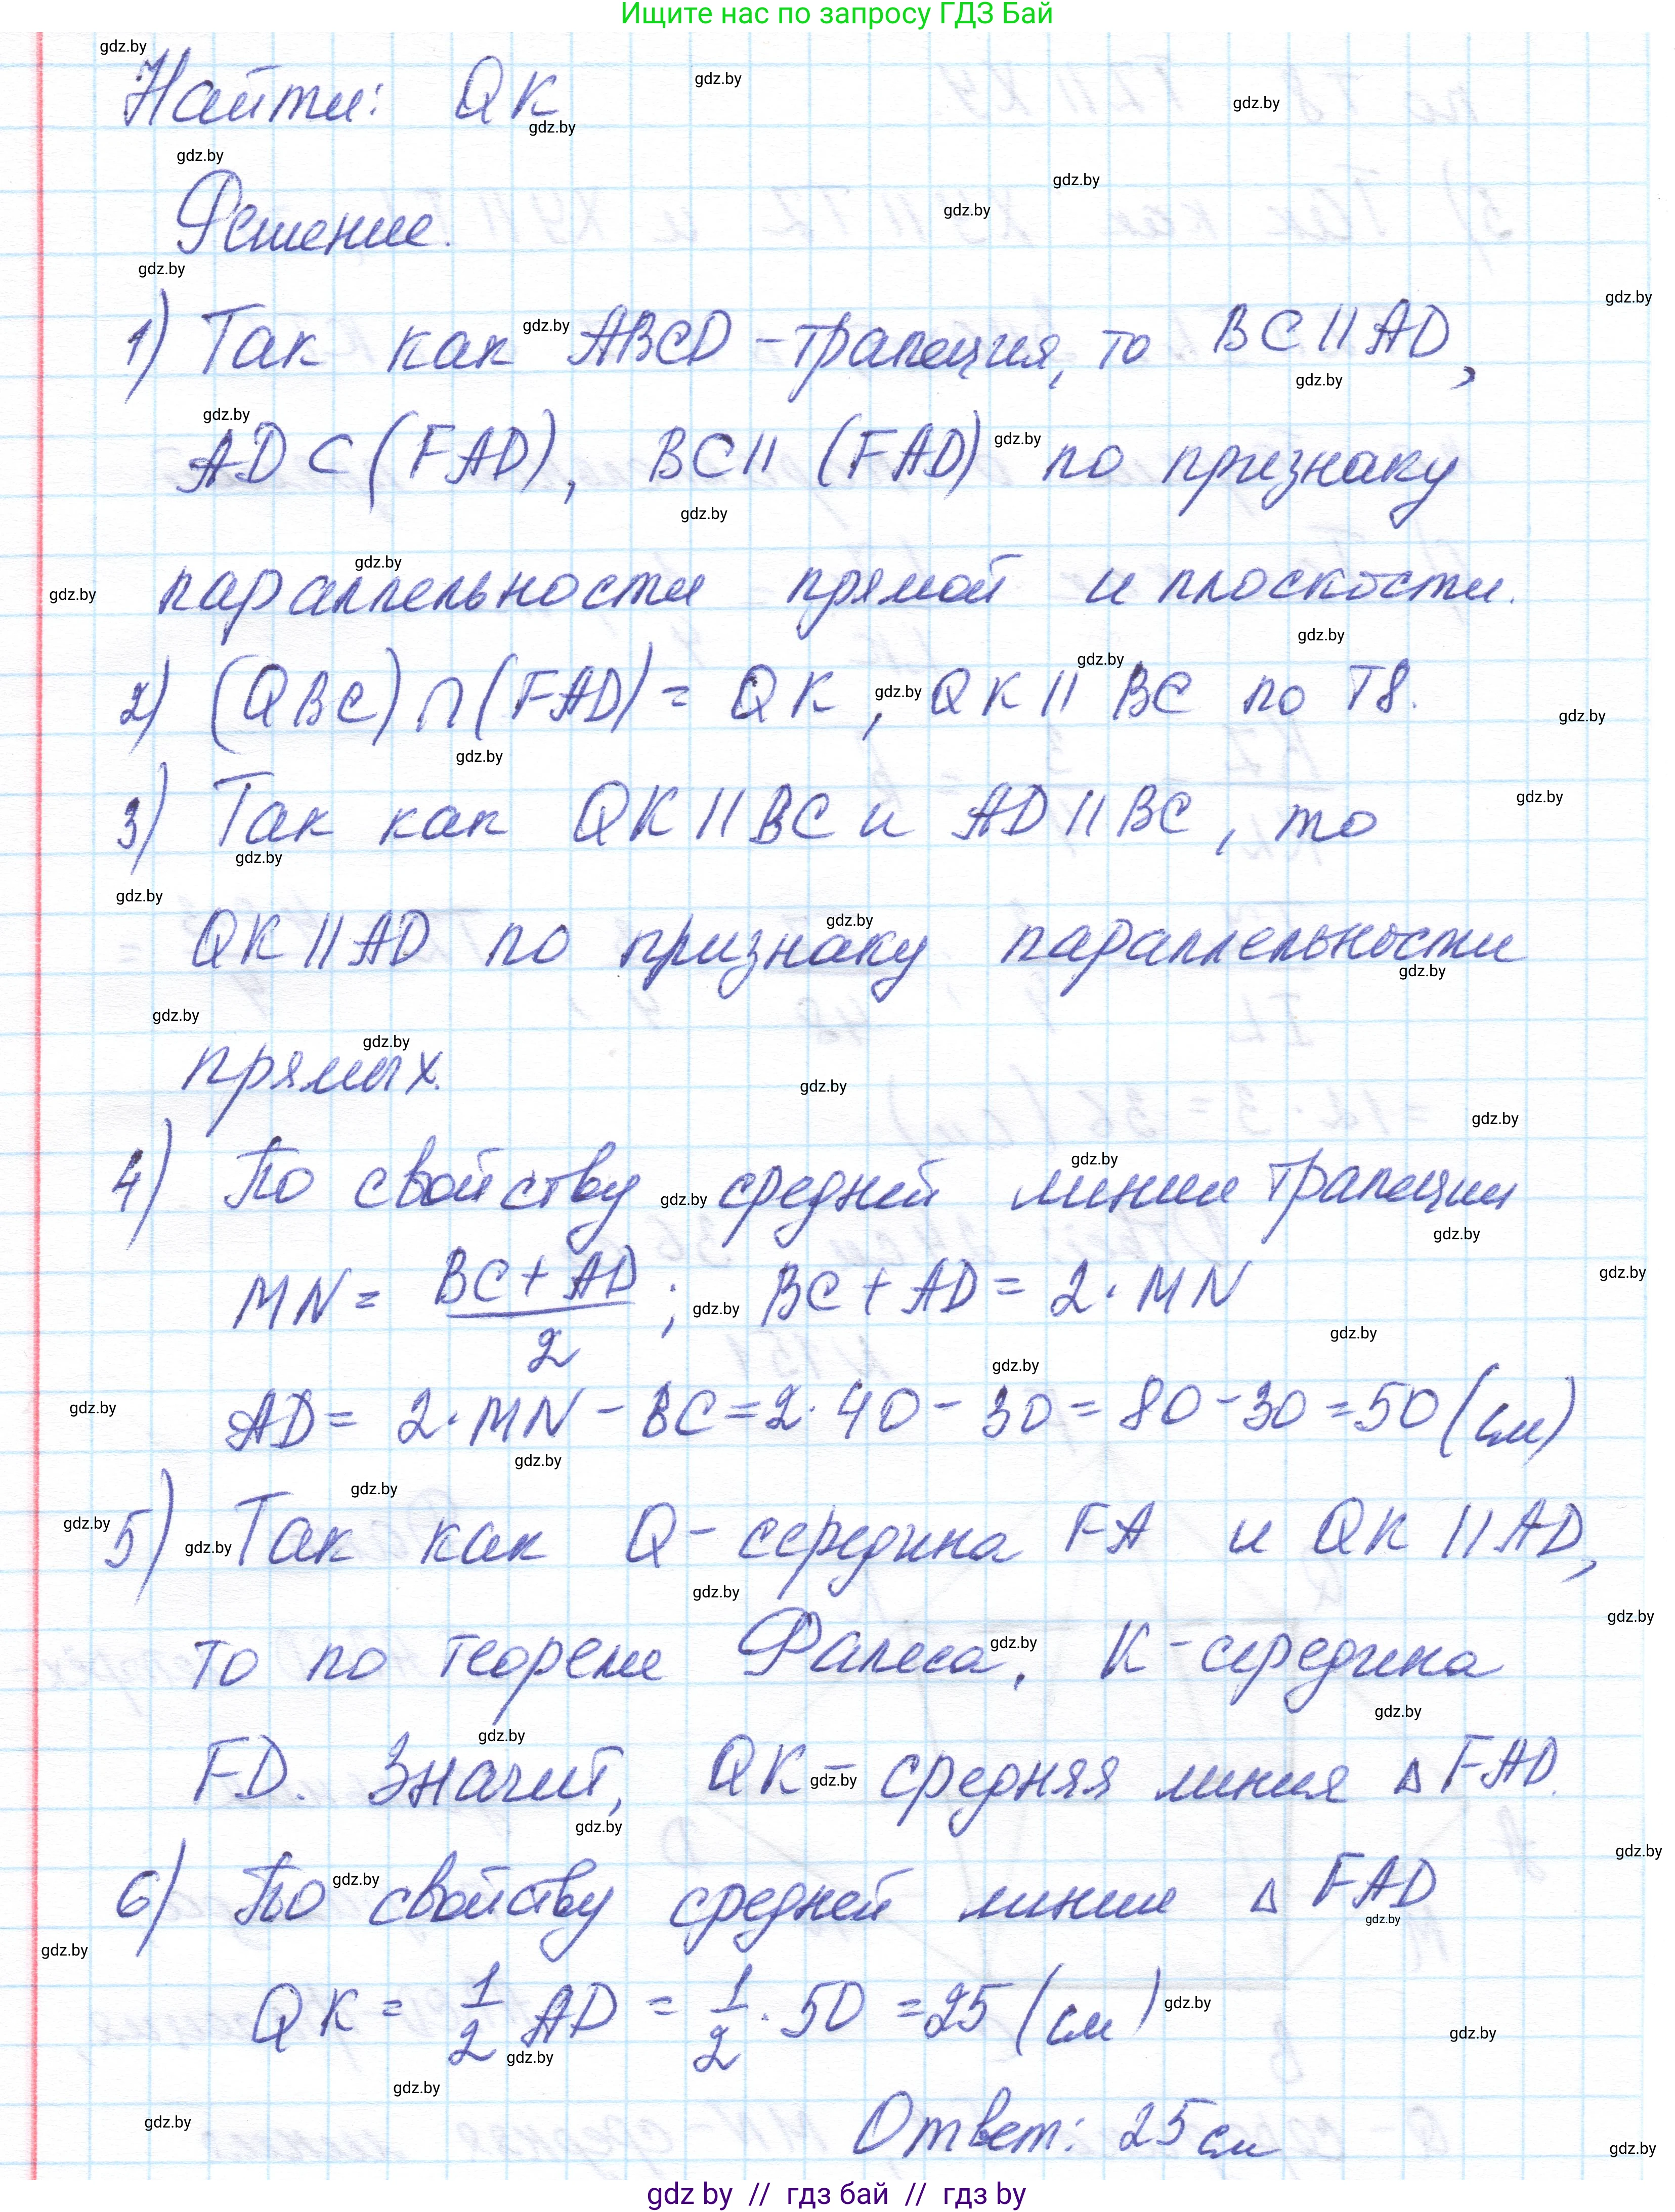 Ищите нас по запросу ГДЗ Бай
Найти: QK
Решение.
1) Так как ABCD - трапеция, то BC || AD,
AD ⊂ (FAD), BC || (FAD) по признаку
параллельности прямой и плоскости.
2) (QBC) ∩ (FAD) = QK, QK || BC по Т8.
3) Так как QK || BC и AD || BC, то
QK || AD по признаку параллельности
прямых.
4) По свойству средней линии трапеции
MN = (BC + AD)/2; BC + AD = 2 · MN
AD = 2 · MN - BC = 2 · 40 - 30 = 80 - 30 = 50 (см)
5) Так как Q - середина FA и QK || AD,
то по теореме Фалеса, K - середина
FD. Значит, QK - средняя линия △ FAD.
6) По свойству средней линии △ FAD
QK = 1/2 AD = 1/2 · 50 = 25 (см)
Ответ: 25 см
gdz by // гдз бай // гдз by